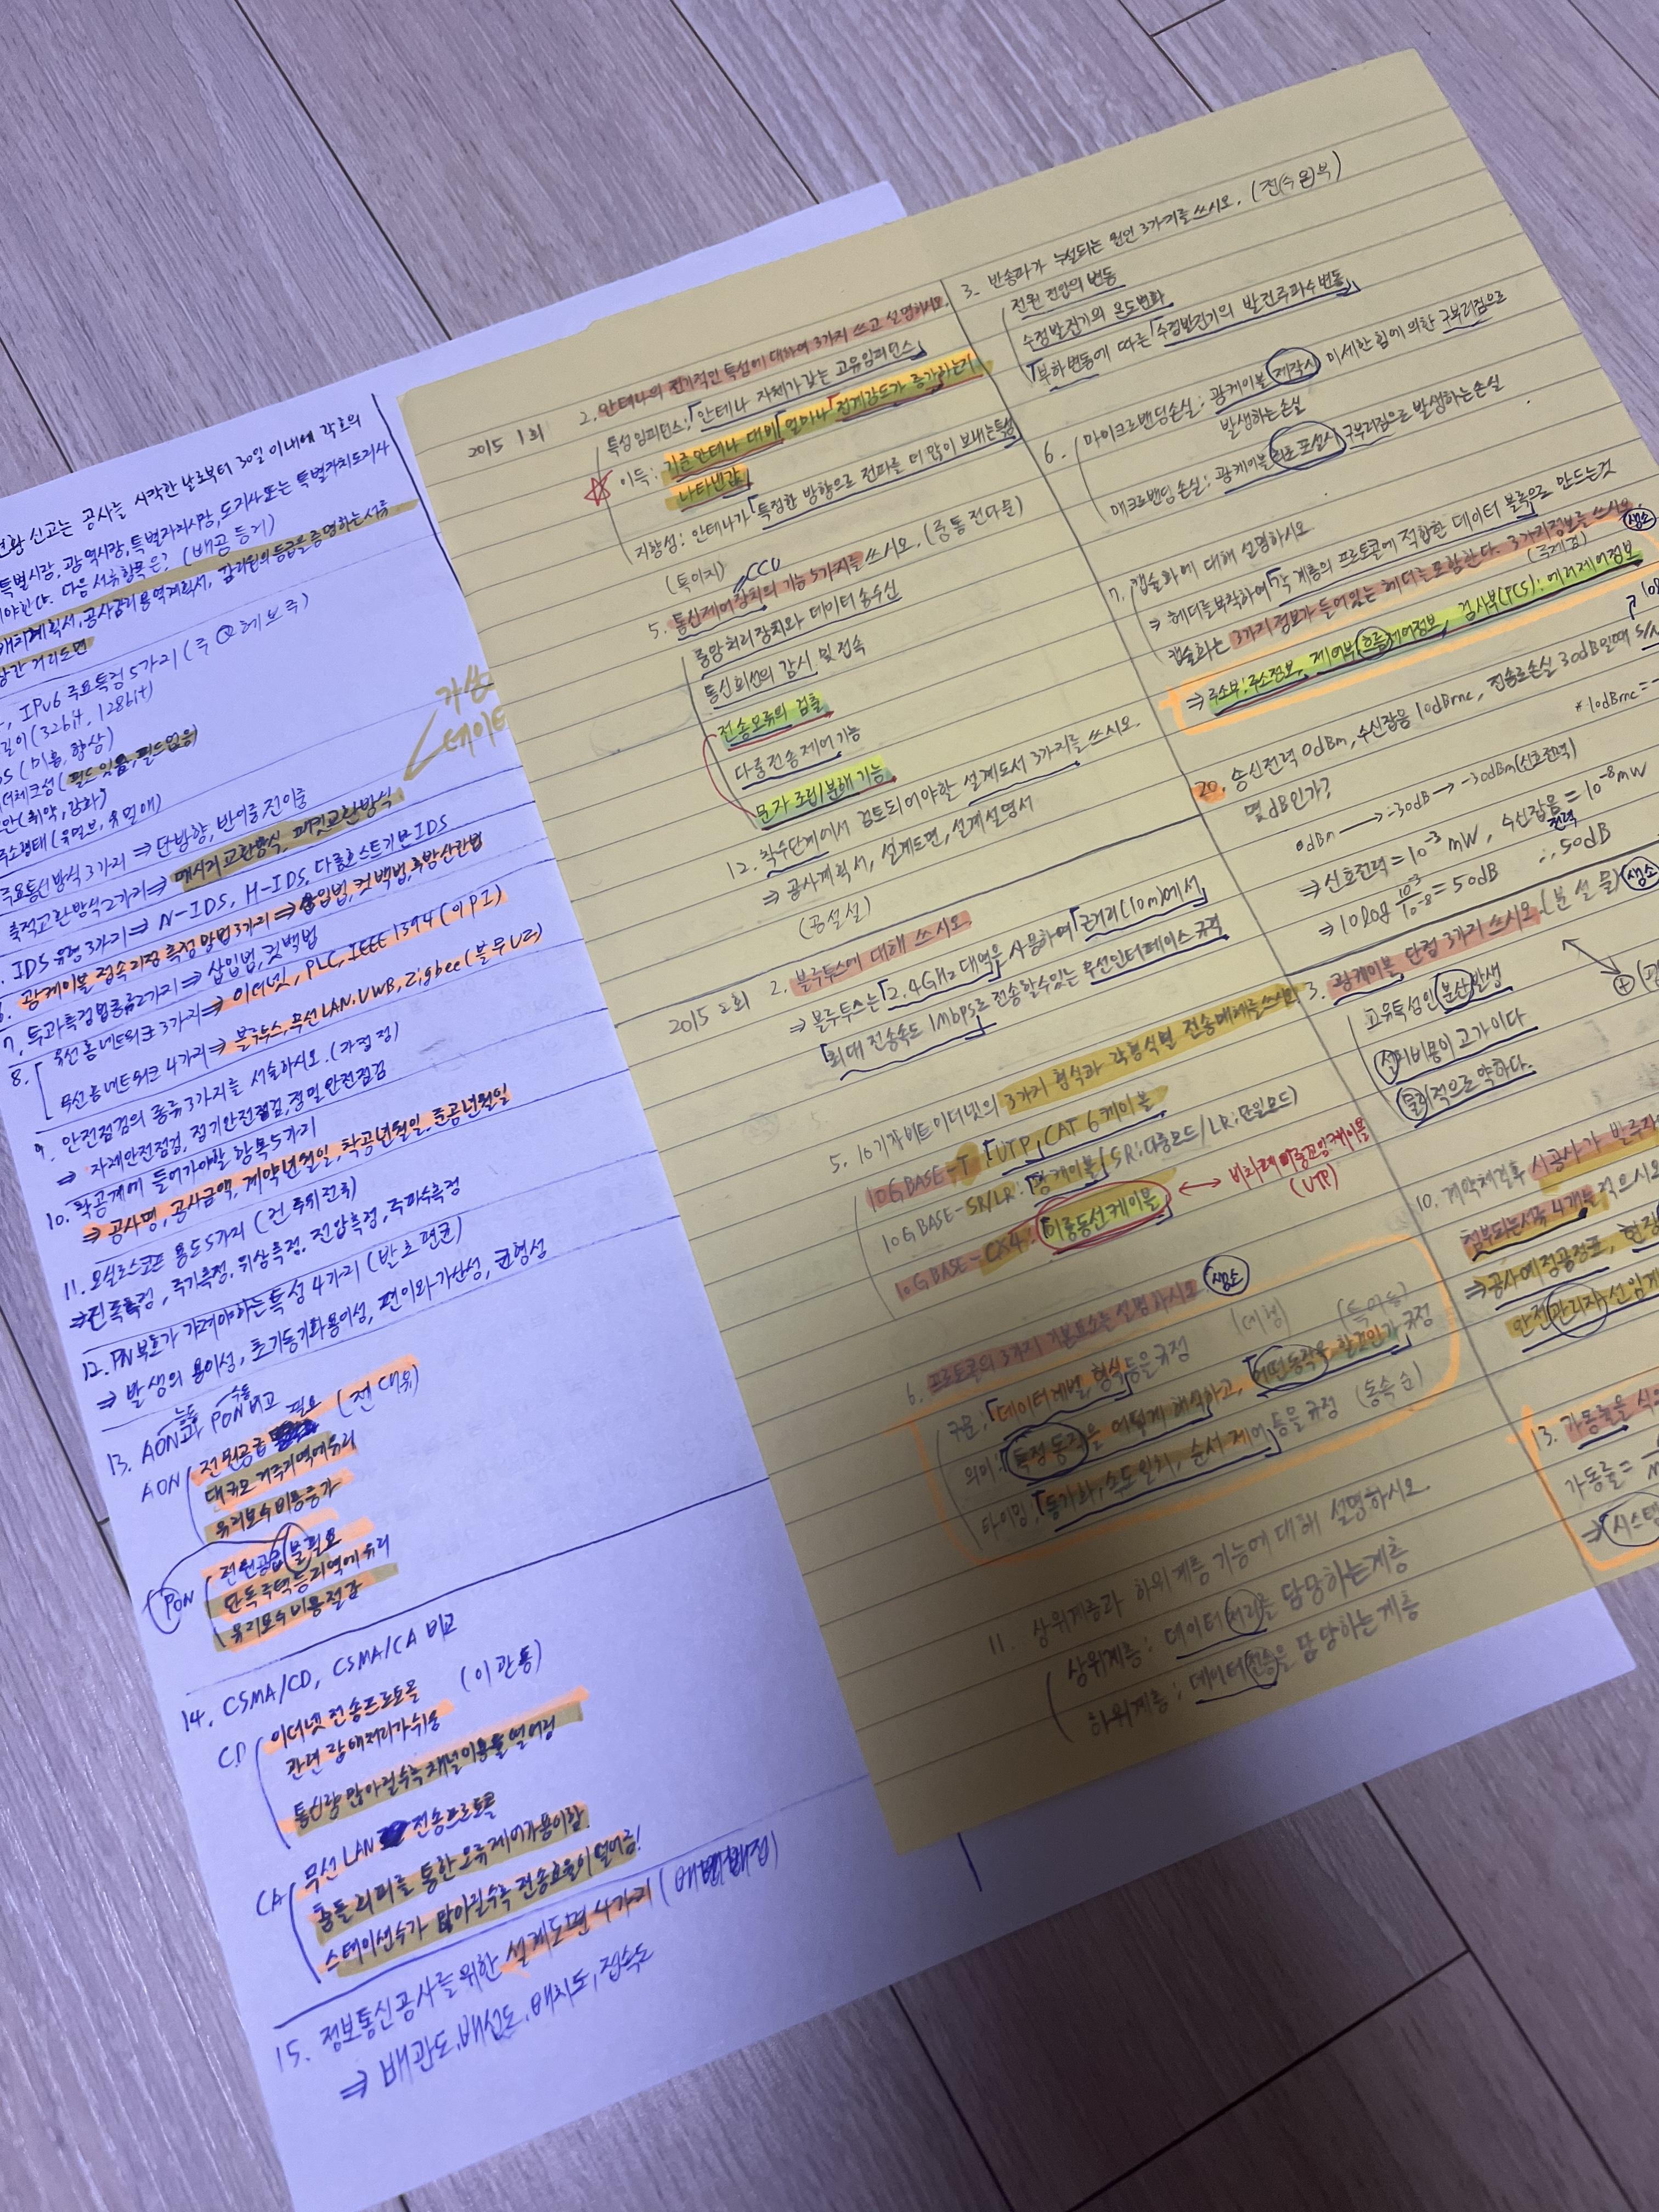 신고는 공사를 시작한 날로부터 30일 이내에 각호의
특별시장, 광역시장, 특별자치시장, 도지사 또는 특별자치도지사
야한다. 다음 서류항목은? (배공 등거)
배치계획서, 공사감리용역계약서, 감리원의 등급을 증명하는 서류
상간 거리도면
, IPv6 주요특징 5가지 (주Q헤보주)
길이 (32bit, 128bit)
oS (미흡, 향상)
더체크섬 (필드있음, 필드없음)
안 (취약, 강화)
가상
데이터
주요통신방식 3가지 ⇒ 단방향, 반이중, 전이중
축적교환방식 2가지 ⇒ 메시지교환방식, 패킷교환방식
IDS 유형 3가지 ⇒ N-IDS, H-IDS, 다중호스트기반IDS
6. 광케이블 접속지점 측정방법 3가지 ⇒ 삽입법, 컷백법, 후방산란법
7. 투과측정법종류 2가지 ⇒ 삽입법, 컷백법
8. 유선홈네트워크 3가지 ⇒ 이더넷, PLC, IEEE 1394 (이PI)
무선홈네트워크 4가지 ⇒ 블루투스, 무선LAN, UWB, Zigbee (블무UZ)
9. 안전점검의 종류 3가지를 서술하시오. (자정정)
⇒ 자체안전점검, 정기안전점검, 정밀안전점검
10. 착공계에 들어가야할 항목 5가지
⇒ 공사명, 공사금액, 계약년월일, 착공년월일, 준공년월일
11. 오실로스코프 용도 5가지 (진주위전주)
⇒ 진폭측정, 주기측정, 위상측정, 전압측정, 주파수측정
12. PN부호가 가져야하는 특성 4가지 (발초편균)
⇒ 발생의 용이성, 초기동기화 용이성, 편이와 가산성, 균형성
능동 수동
13. AON과 PON비교 (전대유)
AON 전원공급 필요
대규모 거주지역에 유리
유지보수비용증가
PON 전원공급 불필요
단독주택등지역에 유리
유지보수비용절감
14. CSMA/CD, CSMA/CA 비교
(이관통)
CD 이더넷 전송프로토콜
관련 장애처리가 쉬움
통신량 많아질수록 채널이용률 떨어짐
CA 무선LAN 전송프로토콜
충돌회피를 통한 오류제어가 용이함.
스테이션수가 많아질수록 전송효율이 떨어짐!
15. 정보통신공사를 위한 설계도면 4가지 (배배배접)
⇒ 배관도, 배선도, 배치도, 접속도
2015 1회
2. 안테나의 전기적인 특성에 대하여 3가지 쓰고 설명하시오.
특성임피던스: 「안테나 자체가 갖는 고유임피던스」
이득: 기준안테나 대비 「얼마나」 「전계강도가 증가하는지
나타낸값」
지향성: 안테나가 「특정한 방향으로 전파를 더 많이 보내는특성」
(특이지)
CCU
5. 통신제어장치의 기능 5가지를 쓰시오. (중통전다문)
중앙처리장치와 데이터 송수신
통신회선의 감시 및 접속
전송오류의 검출
다중전송제어기능
문자 조립/분해 기능
12. 착수단계에서 검토되어야할 설계도서 3가지를 쓰시오.
⇒ 공사계획서, 설계도면, 설계설명서
(공설설)
2015 2회
2. 블루투스에 대해 쓰시오.
⇒ 블루투스는 「2.4GHz 대역을 사용하여 「근거리(10m)에서
「최대 전송속도 1Mbps로 전송할수있는 무선인터페이스 규격
5. 10기가비트이더넷의 3가지 형식과 각형식별 전송매체를 쓰시오
10GBASE-T: 「UTP, CAT 6케이블
10GBASE-SR/LR: 광케이블 (SR:다중모드/LR:단일모드)
10GBASE-CX4: 이중동선케이블 ↔ 비차폐이중꼬임케이블
(UTP)
6. 프로토콜의 3가지 기본요소는 설명하시오 생소
구문: 「데이터레벨, 형식등을 규정 (데형)
의미: 「특정동작을 어떻게 해석하고, 「어떤동작을 할것인가」 규정 (특어동)
타이밍: 「동기화, 속도일치, 순서 제어」 등을 규정 (동속순)
11. 상위계층과 하위계층 기능에 대해 설명하시오.
상위계층: 데이터처리를 담당하는계층
하위계층: 데이터전송을 담당하는 계층
3. 반송파가 누설되는 원인 3가지를 쓰시오. (전(수온)부)
전원 전압의 변동
수정발진기의 온도변화
「부하변동에 따른 「수정발진기의 발진주파수변동」
6. 마이크로밴딩손실: 광케이블 제작시 미세한힘에 의한 구부러짐으로
발생하는손실
매크로밴딩손실: 광케이블 포설시 구부러짐으로 발생하는손실
7. 캡슐화에 대해 설명하시오
⇒ 헤더를부착하여 「각 계층의 프로토콜에 적합한 데이터 블록으로 만드는것
캡슐화는 3가지 정보가 들어있는 헤더를포함한다. 3가지정보를 쓰시오 생소
⇒ 주소부:주소정보, 제어부:흐름제어정보, 검사부(FCS): 에러제어정보
20. 송신전력 0dBm, 수신잡음 10dBrnc, 전송로손실 30dB일때 S/N
몇dB인가?
*10dBrnc = -
0dBm → -30dB → -30dBm(신호전력)
⇒ 신호전력 = 10⁻³ mW, 수신잡음전력 = 10⁻⁸ mW
⇒ 10log 10⁻³/10⁻⁸ = 50dB ∴ 50dB
3. 광케이블 단점 3가지 쓰시오. (분설물) 생소
고유특성인 분산발생
설치비용이 고가이다
물리적으로 약하다.
10. 계약체결후 시공사가 발주자
첨부되는서류 4개를 적으시오
⇒ 공사예정공정표, 현장
안전관리자 선임계
13. 가동률을
가동률 =
⇒ 시스템